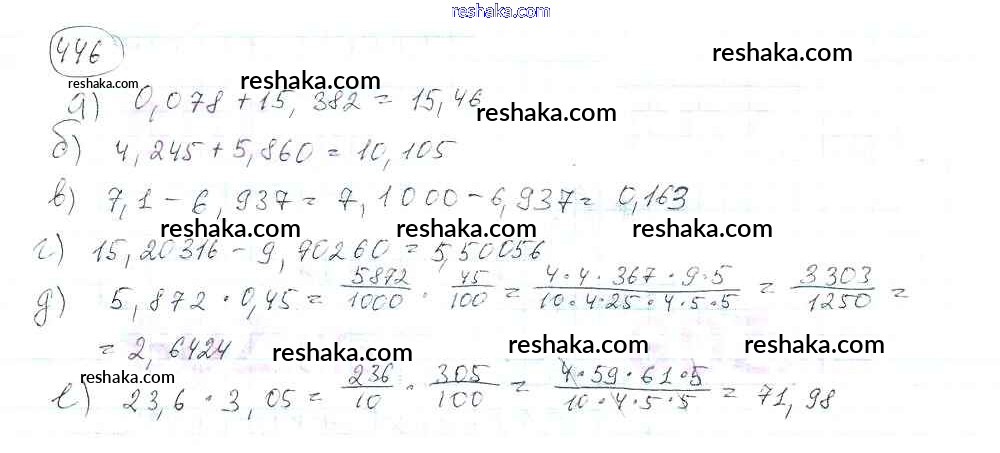 reshaka.com
446
reshaka.com
reshaka.com
reshaka.com
а) 0,078 + 15,382 = 15,46
reshaka.com
б) 4,245 + 5,860 = 10,105
в) 7,1 - 6,937 = 7,1000 - 6,937 = 0,163
reshaka.com
reshaka.com
reshaka.com
г) 15,20316 - 9,70260 = 5,50056
д) 5,872 · 0,45 = 5872/1000 · 45/100 = 4·4·367·9·5/10·4·25·4·5·5 = 3303/1250 =
= 2,6424
reshaka.com
reshaka.com
reshaka.com
reshaka.com
е) 23,6 · 3,05 = 236/10 · 305/100 = 4·59·61·5/10·4·5·5 = 71,98